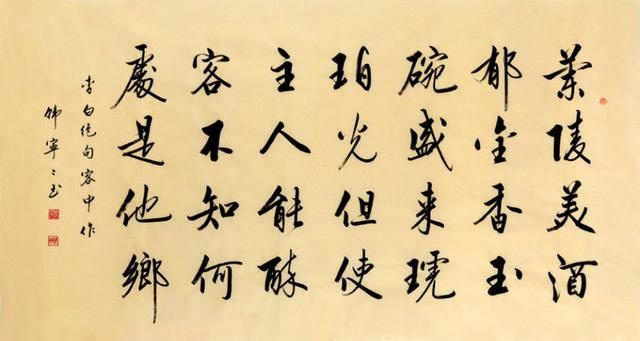 蘭陵美酒
郁金香玉
碗盛来琥
珀光但使
主人能醉
客不知何
處是他鄉
李白绝句客中作
寧